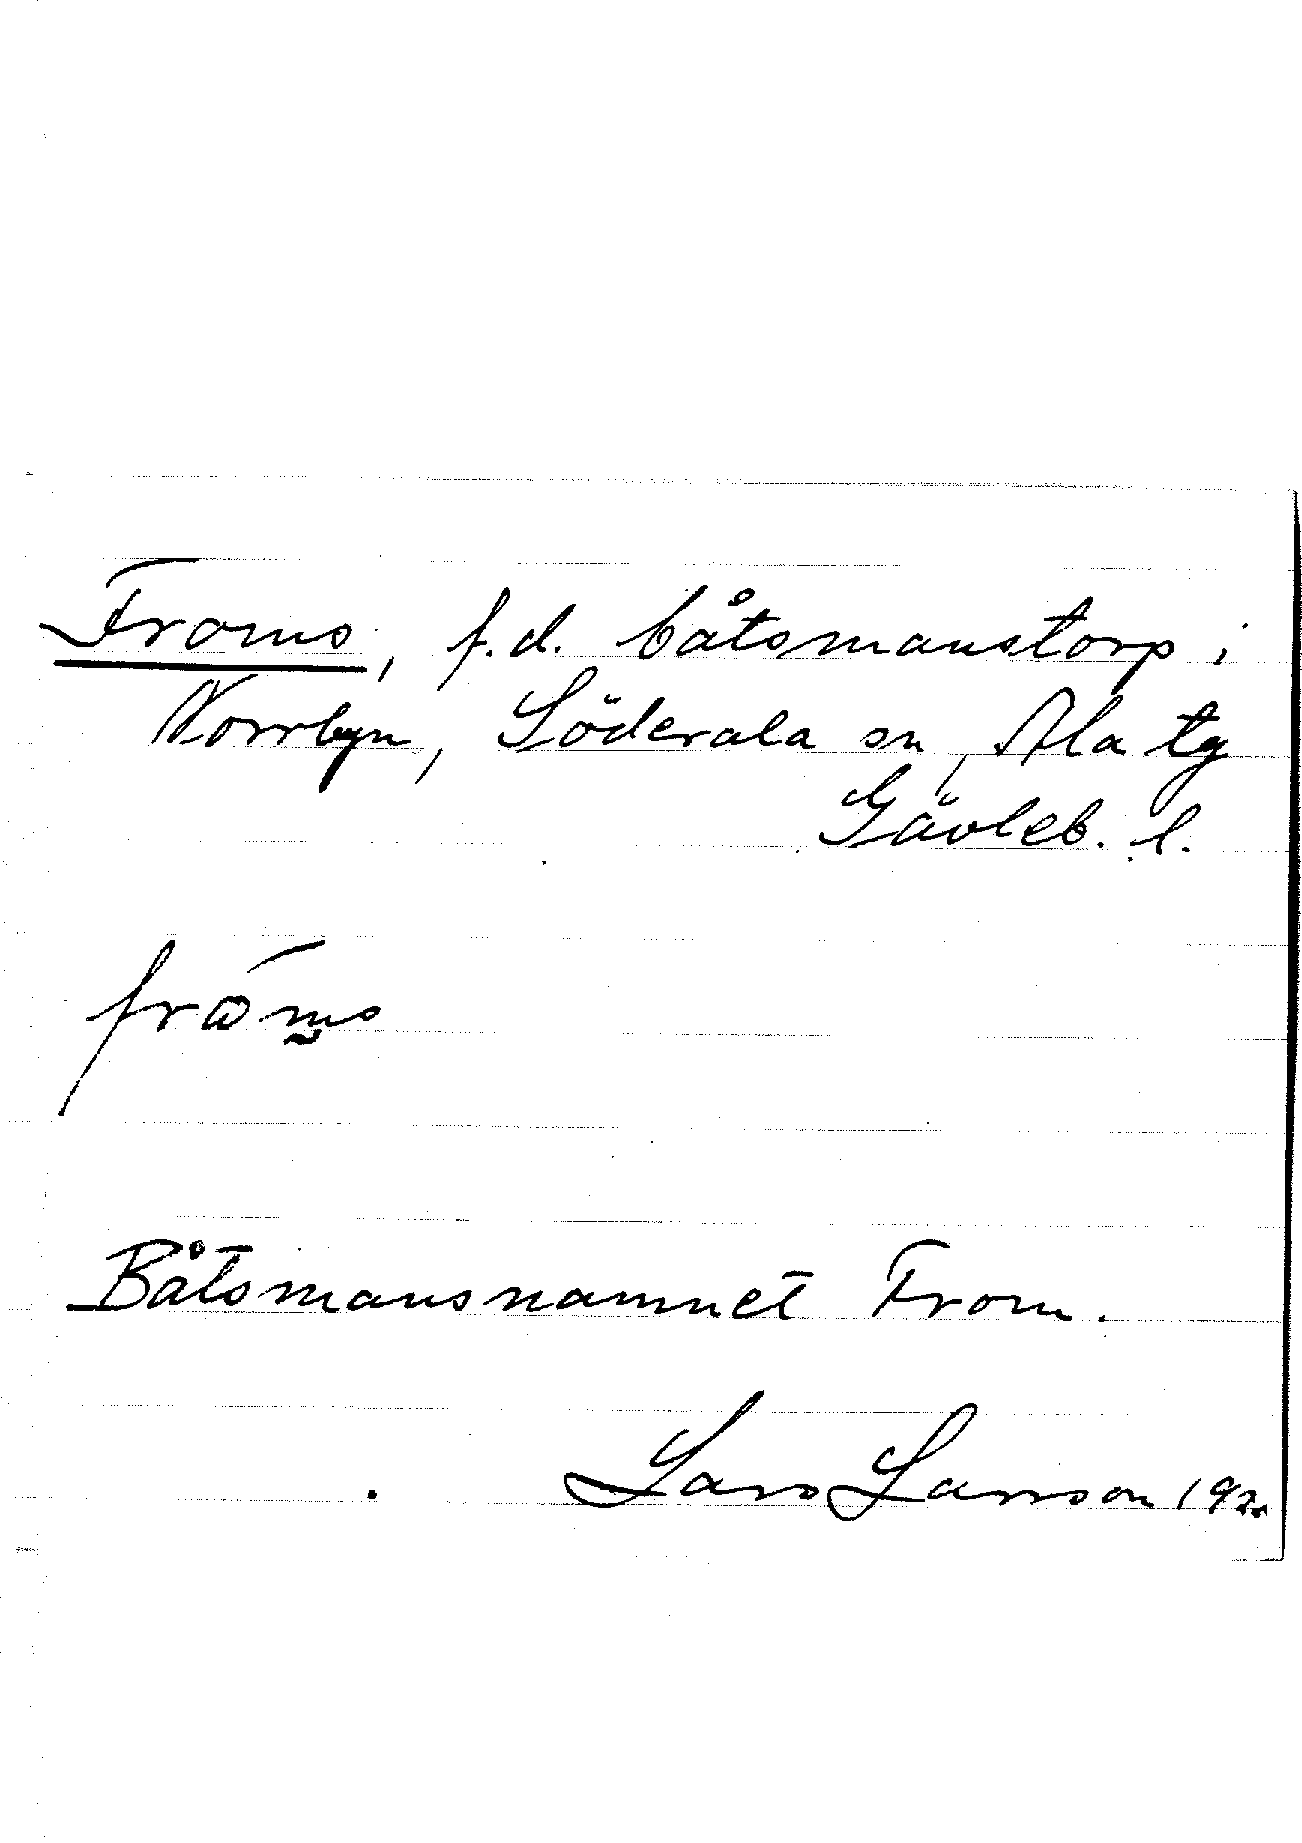 Froms, f.d. båtsmanstorp i
Norrbyn, Söderala sn, Ala tg
Gävleb. l.
Båtsmansnamnet From.
Lars Larsson